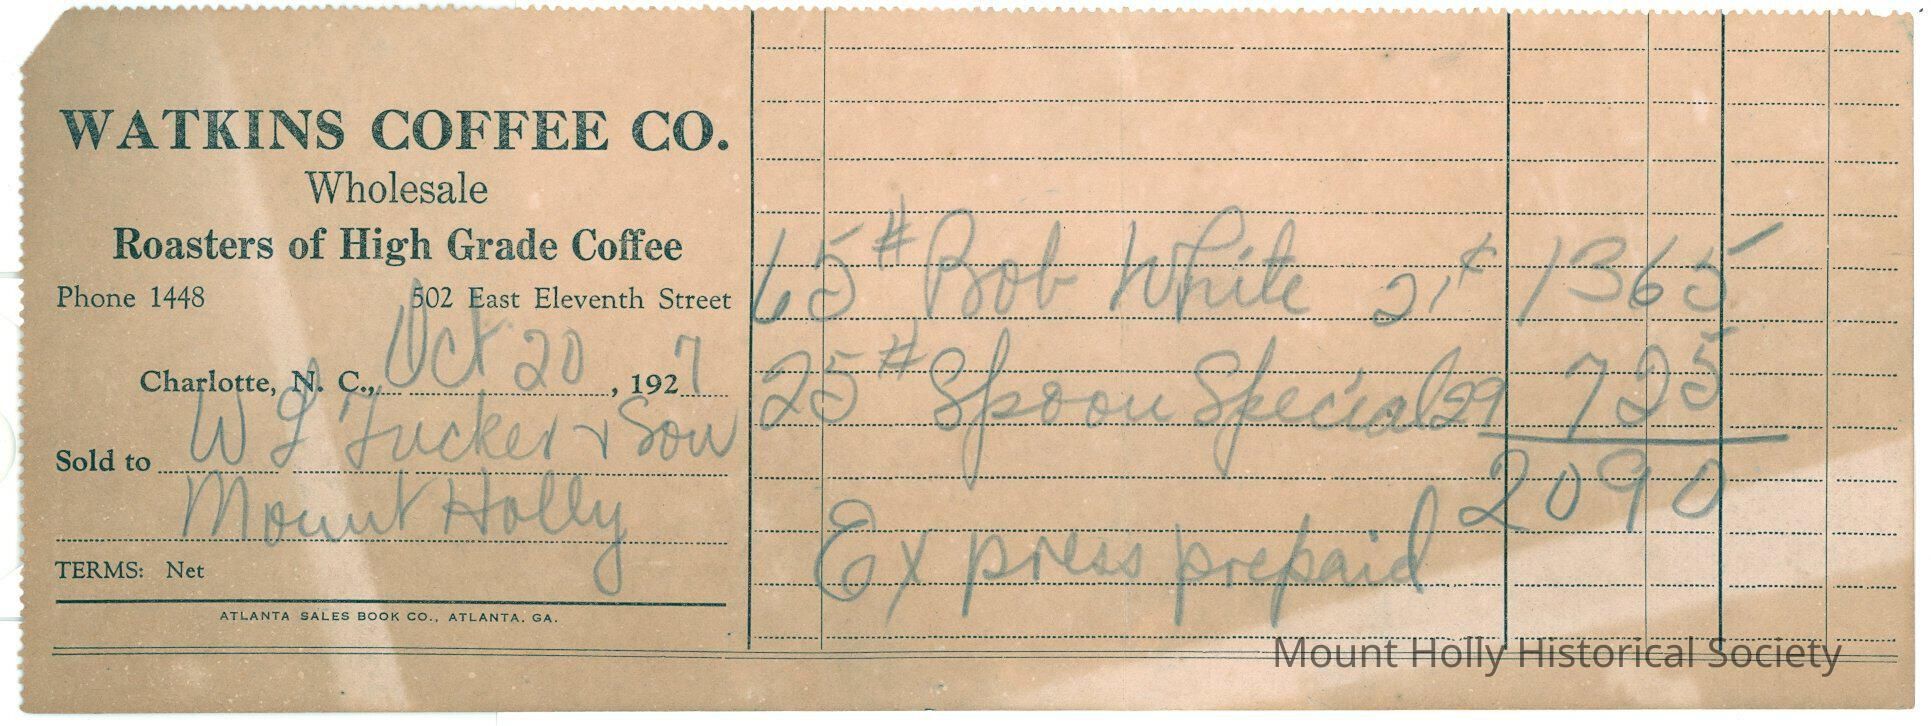 WATKINS COFFEE CO.
Wholesale
Roasters of High Grade Coffee
Phone 1448 502 East Eleventh Street
Charlotte, N. C., Oct 20, 1927
Sold to W L Tucker & Son
Mount Holly
TERMS: Net
ATLANTA SALES BOOK CO., ATLANTA, GA.
65# Bob White 21¢ 1365
25# Spoon Special 29 725
2090
Express prepaid
Mount Holly Historical Society